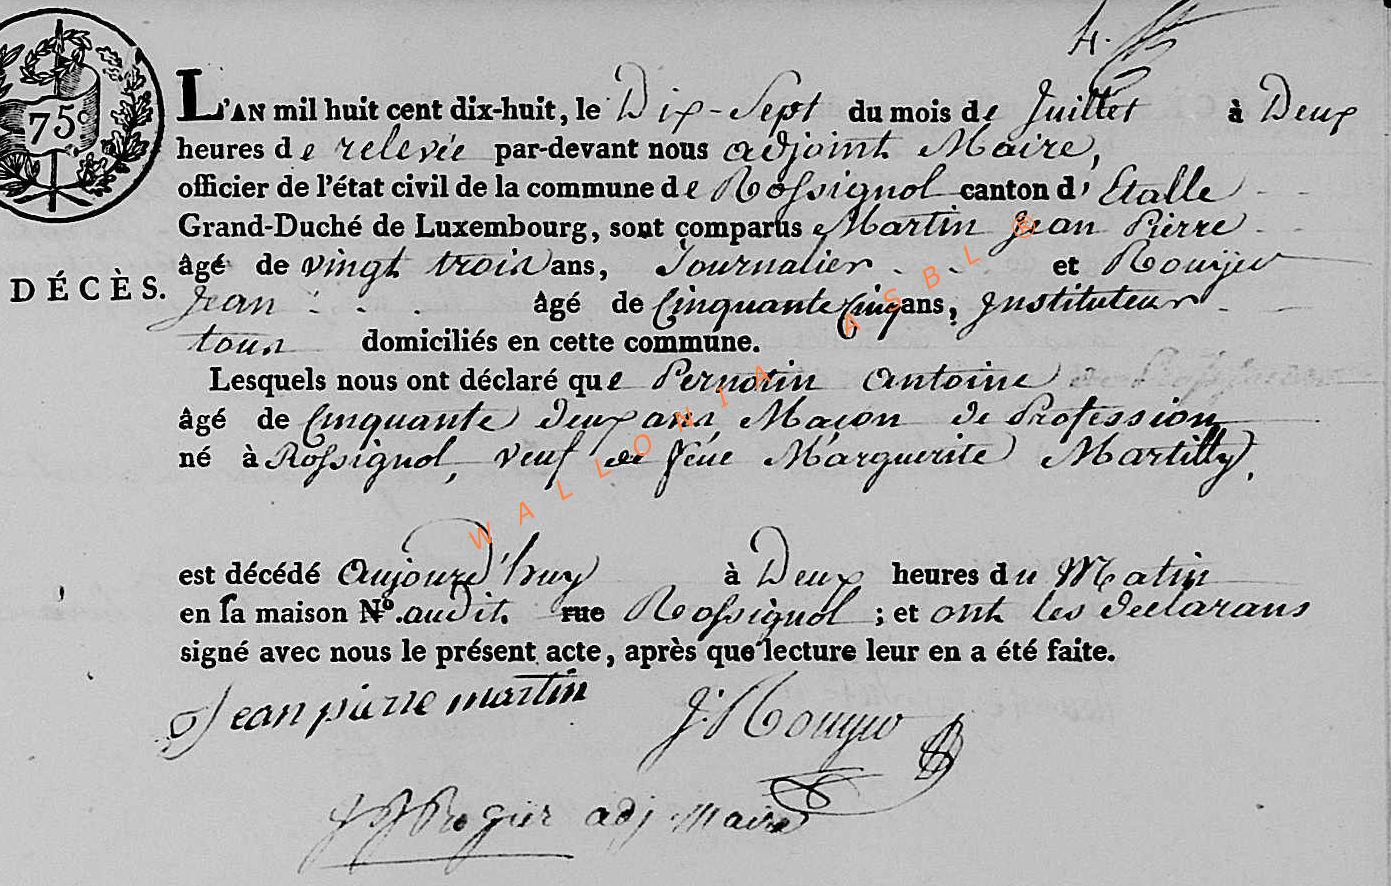 4.
75c
L'AN mil huit cent dix-huit, le Dix-Sept du mois de Juillet à Deux
heures de relevée par-devant nous adjoint Maire,
officier de l'état civil de la commune de Rossignol canton d' Etalle
Grand-Duché de Luxembourg, sont comparus Martin Jean Pierre
DÉCÈS.
âgé de vingt trois ans, Journalier et Rouyer
Jean âgé de Cinquante Cinq ans, Instituteur
tous domiciliés en cette commune.
Lesquels nous ont déclaré que Pernotin Antoine
âgé de Cinquante deux ans Maçon de Profession
né à Rossignol, veuf de feue Marguerite Martilly,
est décédé aujourd'huy à Deux heures du Matin
en sa maison No. audit. rue Rossignol ; et ont les declarans
signé avec nous le présent acte, après que lecture leur en a été faite.
Jean pierre martin J. Rouyer
adj Maire
WALLONIA ASBL ©